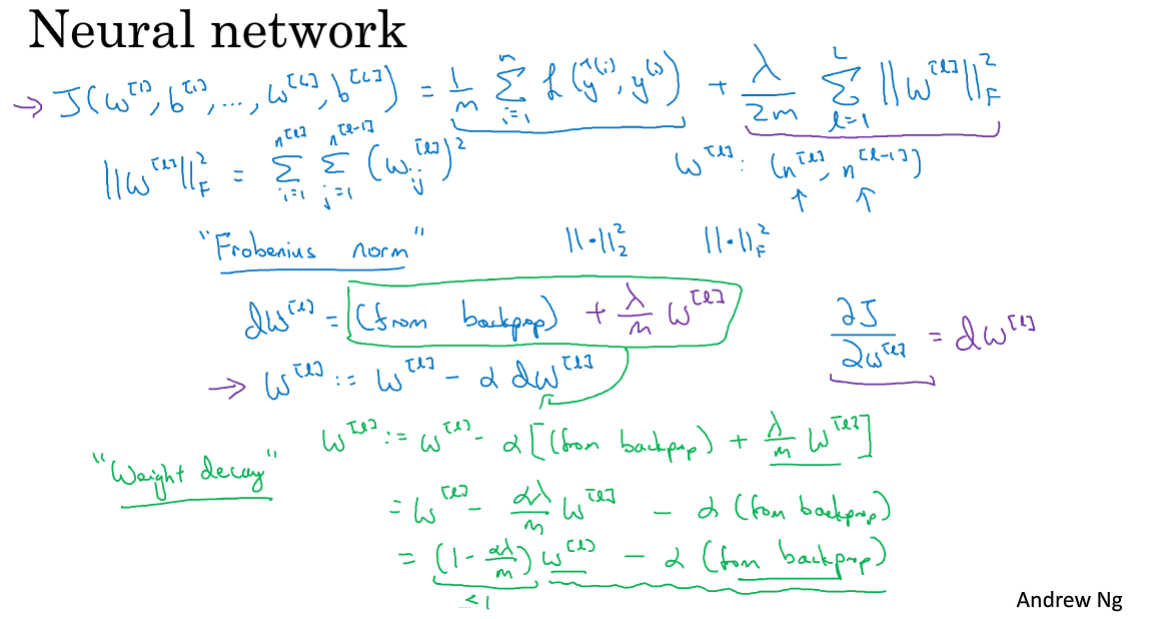 Neural network
→ J(w^[1], b^[1], ..., w^[L], b^[L]) = 1/m Σ_{i=1}^{n} L(ŷ^(i), y^(i)) + λ/2m Σ_{l=1}^{L} ||w^[l]||²_F
||w^[l]||²_F = Σ_{i=1}^{n^[l]} Σ_{j=1}^{n^[l-1]} (w_ij^[l])² w^[l]: (n^[l], n^[l-1])
↑ ↑
"Frobenius norm" ||·||²_2 ||·||²_F
dw^[l] = (from backprop) + λ/m w^[l] ∂J/∂w^[l] = dw^[l]
→ w^[l] := w^[l] - α dw^[l]
w^[l] := w^[l] - α [(from backprop) + λ/m w^[l]]
"Weight decay"
= w^[l] - αλ/m w^[l] - α (from backprop)
= (1 - αλ/m) w^[l] - α (from backprop)
<1
Andrew Ng